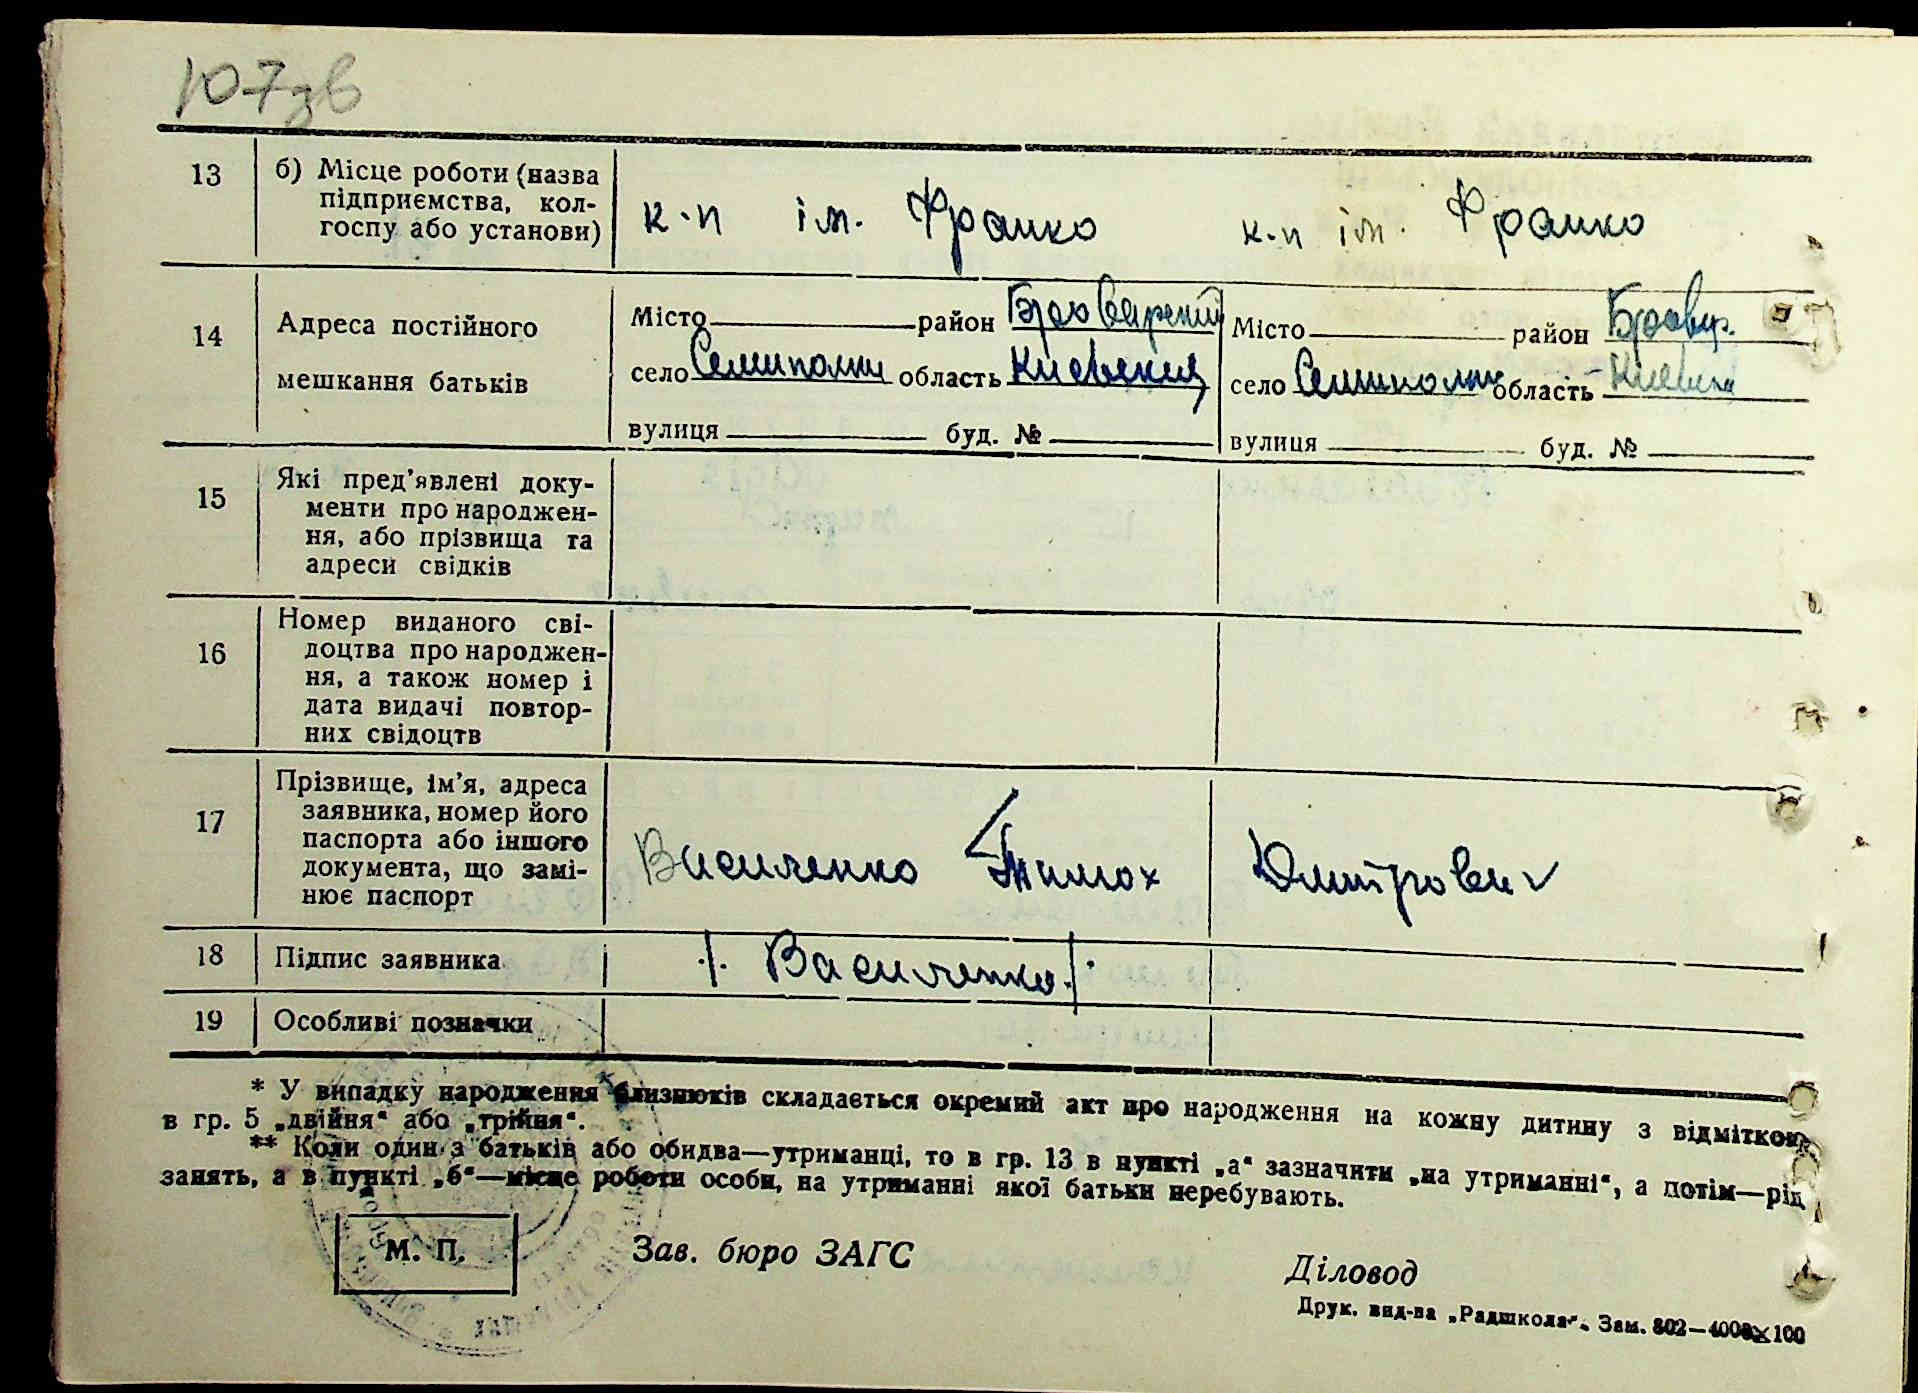 107зв
13 б) Місце роботи (назва
підприємства, кол-
госпу або установи) к-п ім. Франко к-п ім. Франко
14 Адреса постійного
мешкання батьків
Місто район Броварский Місто район Бровар.
село Семиполки область Киевский село Семиполки область Киевска
вулиця буд. № вулиця буд. №
15 Які пред'явлені доку-
менти про народжен-
ня, або прізвища та
адреси свідків
16 Номер виданого сві-
доцтва про народжен-
ня, а також номер і
дата видачі повтор-
них свідоцтв
17 Прізвище, ім'я, адреса
заявника, номер його
паспорта або іншого
документа, що замі-
нює паспорт
Василенко Тимох Дмитрович
18 Підпис заявника ./. Василенко ./.
19 Особливі позначки
* У випадку народження близнюків складається окремий акт про народження на кожну дитину з відміткою
в гр. 5 „двійня“ або „трійня“.
** Коли один з батьків або обидва—утриманці, то в гр. 13 в пункті „а“ зазначити „на утриманні“, а потім—рід
занять, а в пункті „б“—місце роботи особи, на утриманні якої батьки перебувають.
М. П. Зав. бюро ЗАГС Діловод
Друк. вид-ва „Радшкола“. Зам. 802—4000×100